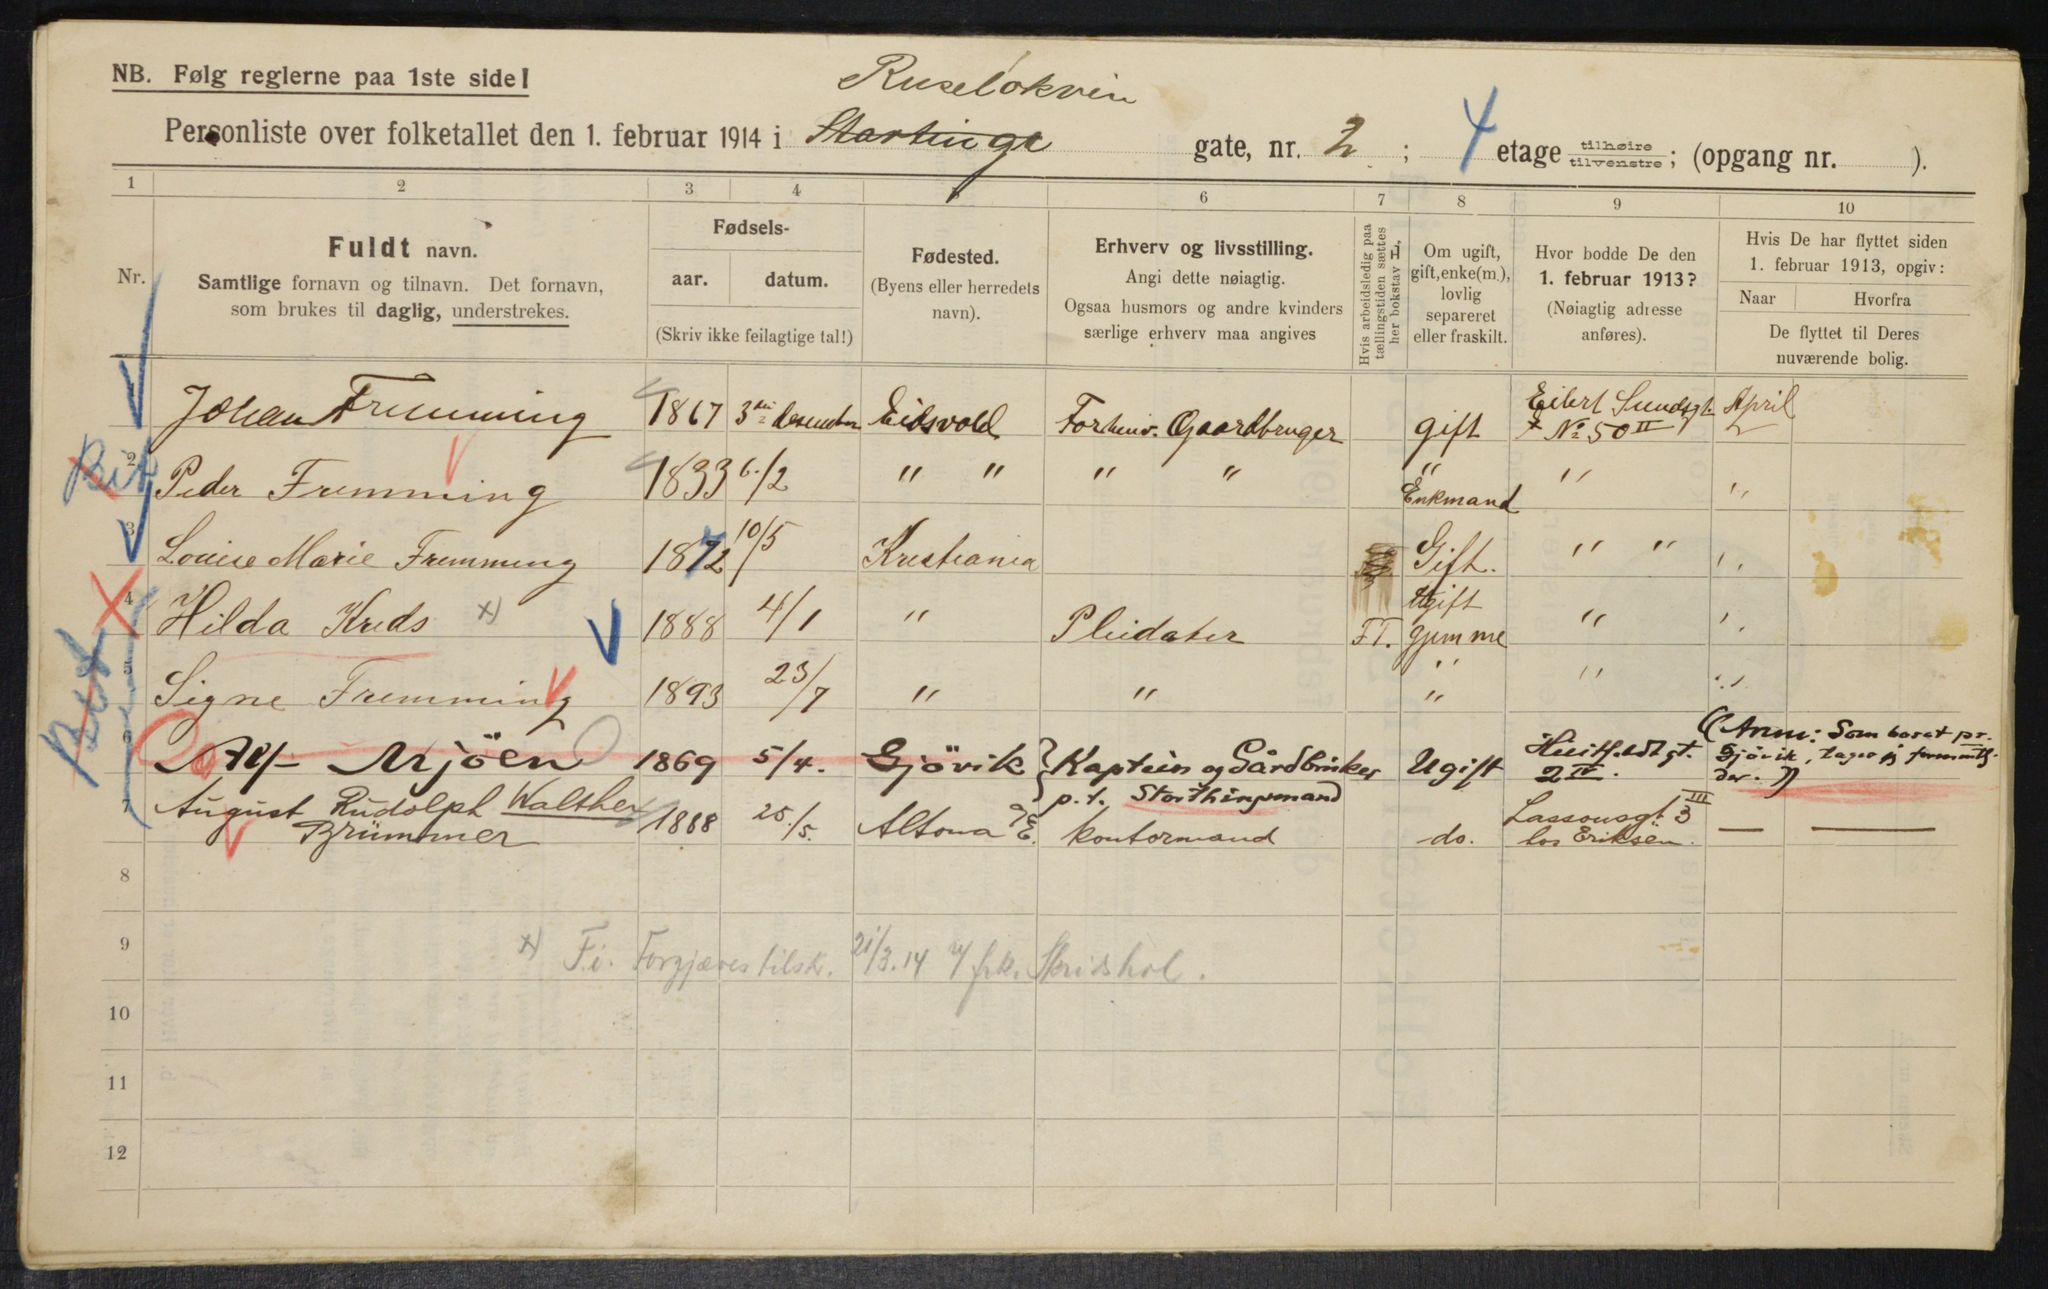 NB. Følg reglerne paa 1ste side!
Ruseløkvin
Personliste over folketallet den 1. februar 1914 i Stortings gate, nr. 2 ; 4 etage tilhøire tilvenstre ; (opgang nr. ).
1 2 3 4 6 7 8 9 10
Nr.
Fuldt navn.
Samtlige fornavn og tilnavn. Det fornavn,
som brukes til daglig, understrekes.
Fødsels-
aar. datum.
(Skriv ikke feilagtige tal!)
Fødested.
(Byens eller herredets
navn).
Erhverv og livsstilling.
Angi dette nøiagtig.
Ogsaa husmors og andre kvinders
særlige erhverv maa angives
Hvis arbeidsledig paa
tællingstiden sættes
her bokstav L.
Om ugift,
gift, enke(m.),
lovlig
separeret
eller fraskilt.
Hvor bodde De den
1. februar 1913?
(Nøiagtig adresse
anføres).
Hvis De har flyttet siden
1. februar 1913, opgiv:
Naar Hvorfra
De flyttet til Deres
nuværende bolig.
1 Johan Fremming 1867 3die desember Eidsvold Forhenv. Gaardbruger gift Eilert Sundsgt. No 50 II April
2 Peder Fremming 1833 6/2 " " " " " Enkmand " "
3 Louise Marie Fremming 1872 10/5 Kristiania Gift. " " "
4 Hilda Kreds x) 1888 4/1 " FT. Ugift " "
5 Signe Fremming 1893 23/7 " " " " "
6 Alf Mjöen 1869 5/4. Gjövik Kaptein og Gårdbruker p.t. Storthingsmand Ugift Huitfeldtgt. 2 IV. (Anm: Som boret pr. Gjövik,
7 August Rudolph Walther Brümmer 1888 25./5. Altona kontormand do. Lassonsgt. 3 III hos Eriksen. — —
8
9
x) F.i. Forgjæves tilsk. 21/3.14 frk. Skridshol.
10
11
12